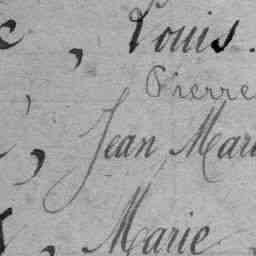 , Louis.
Pierre
, Jean Mari
, Marie